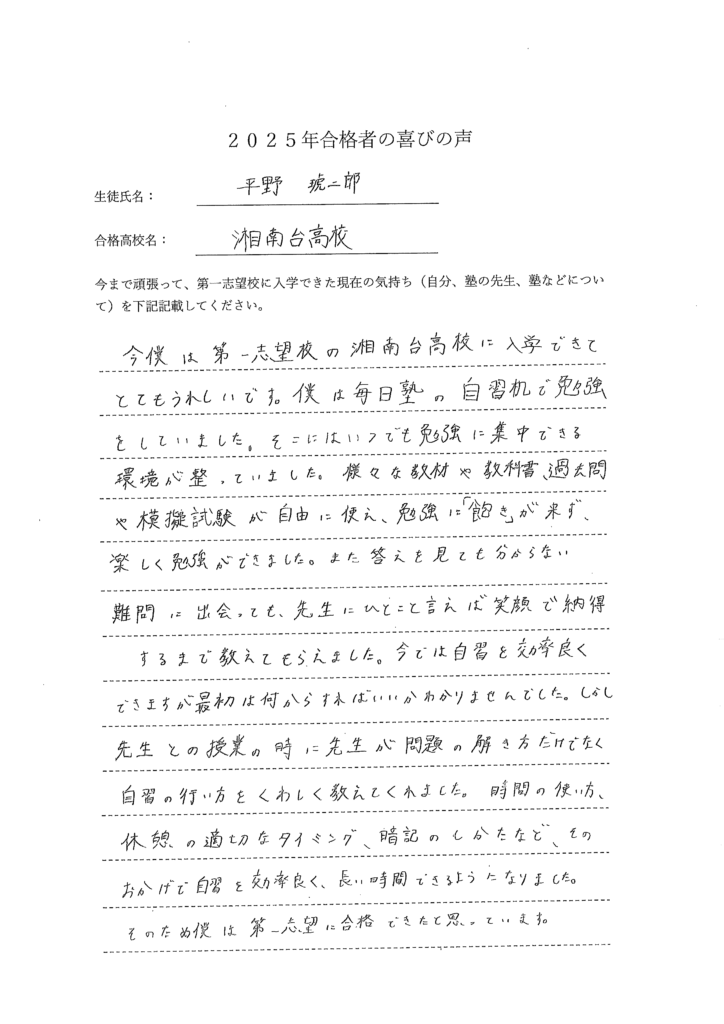 2025年合格者の喜びの声
生徒氏名： 平野 琥二郎
合格高校名： 湘南台高校
今まで頑張って、第一志望校に入学できた現在の気持ち（自分、塾の先生、塾などについ
て）を下記記載してください。
今僕は第一志望校の湘南台高校に入学できて
とてもうれしいです。僕は毎日塾の自習机で勉強
をしていました。そこにはいつでも勉強に集中できる
環境が整っていました。様々な教材や教科書、過去問
や模擬試験が自由に使え、勉強に「飽き」が来ず、
楽しく勉強ができました。また答えを見ても分からない
難問に出会っても、先生にひとこと言えば笑顔で納得
するまで教えてもらえました。今では自習を効率良く
できますが最初は何からすればいいかわかりませんでした。しかし
先生との授業の時に先生が問題の解き方だけでなく
自習の行い方をくわしく教えてくれました。時間の使い方、
休憩の適切なタイミング、暗記のしかたなど、その
おかげで自習を効率良く、長い時間できるようになりました。
そのため僕は第一志望に合格できたと思っています。